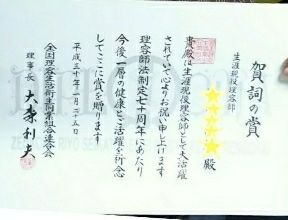 賀詞の賞
生涯現役理容師
殿
貴殿は生涯現役理容師として大活躍
されていて心よりお祝い申し上げます
理容師法制定七十周年にあたり
今後一層の健康とご活躍を祈念
してここに賞を贈ります
平成三十年一月二十五日
全国理容生活衛生同業組合連合会
理事長 大森利夫